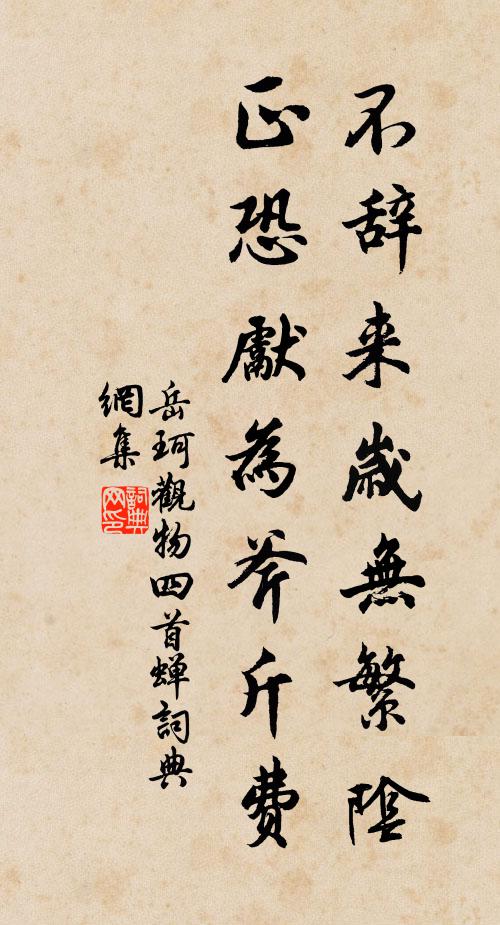 不辞来歲無繁陰
正恐獻為斧斤費
岳珂觀物四首蝉詞典
網集
詞典
网印